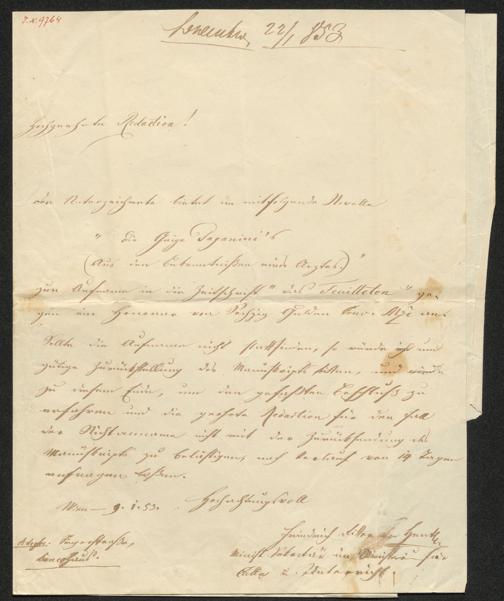 I.N. 9764
22/1 853
Hochgeehrte Redaction!
der Unterzeichnete bietet im mitfolgende Novelle
" die Geige Paganini's
(Aus den Bekenntnißen eines Arztes.) "
zur Aufname in die Zeitschrift " das Feuilleton " ge-
gen ein Honorar von Sechzig Gulden Conv. Mze an.
Sollte die Aufname nicht stattfinden, so würde ich um
gütige Zurückstellung des Manuskripts bitten, und würde
zu diesem Ende, um den gefaßten Beschluß zu
erfahren und die geehrte Redaction für den Fall
der Nichtanname nicht mit der Zurücksendung des
Manuskripts zu belästigen, nach Verlauf von 14 Tagen
anfragen laßen.
Wien 9.1.53. Hochachtungsvoll
Heinrich Ritter von
Minist. Sekretär im Ministerium für
Cultus u. Unterricht